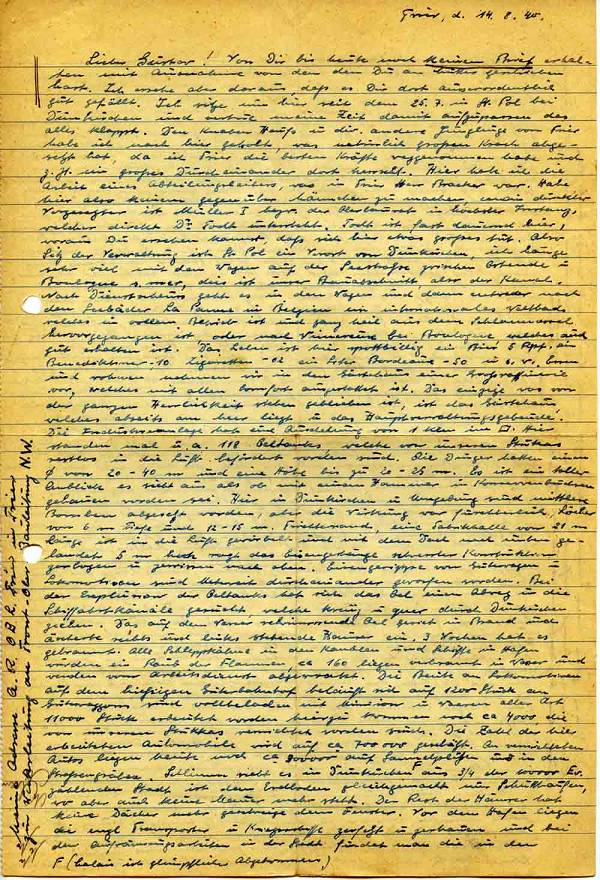 Trier, d. 14. 8. 40.
Lieber Gustav! Von Dir bis heute noch keinen Brief erhal-
ten mit Ausnahme von den den Du an geschrieben
hast. Ich ersehe aber daraus, daß es Dir dort ausserordentlich
gut gefällt. Ich sitze nun hier seit dem 25.7. in St. Pol bei
Dünkirchen und vertrete meine Zeit damit aufzupassen das
alles klappt. Den Knaben u. dir. andere Jünglinge von Trier
habe ich nach hier geholt, was natürlich großen Krach abge-
setzt hat, da ich Trier die besten Kräfte weggenommen habe und
z. Zt. ein großes Durcheinander dort herrscht. Hier hab ich die
Arbeit eines Abteilungsleiters, was in Trier Herr war. Habe
hier also keinen gegenüber Männchen zu machen, mein direkter
Vorgesetzter ist Müller I der Oberbaurat in höchster
welcher direkt Dr. Todt untersteht. Todt ist fast dauernd hier,
woraus Du ersehen kannst, daß sich hier etwas großes tut. Also
Sitz der Verwaltung ist St. Pol ein Vorort von Dünkirchen, ich
sehr viel mit dem Wagen auf der zwischen Ostende u
Boulogne s. mer, dies ist unser Bauabschnitt also der Kanal.
Nach Dienstschluss geht es in den Wagen und dann entweder nach
den Seebäder La Panne in Belgien ein internationales Weltbad
welches in vollem Betrieb ist und ganz heil aus dem Schlamassel
hervorgegangen ist oder nach bei Boulogne welches auch
gut erhalten ist. Das Leben ist hier spottbillig ein Bier 5 Rpf. ein
Benediktiner -.10 Zigaretten -.02 ein Liter Bordeaux -.50 u. s. w.
und wohnen nehmen wir in dem Gästehaus einer Großraffinerie
vor, welches mit allem Comfort ausgestattet ist. Das einzige was von
der ganzen Herrlichkeit stehen geblieben ist, ist das Gästehaus
welches abseits am Meer liegt u das Hauptverwaltungsgebäude.
Die Industrieanlage hat eine Ausdehnung von 1 Klm im □. Hier
standen mal u. a. 118 Oeltanks welche von unseren Stukas
restlos in die Luft befördert worden sind. Die Dinger hatten einen
Ø von 20 - 40 m und eine Höhe bis zu 20 - 25 m. Es ist ein toller
Anblick es sieht aus als ob mit einem Hammer in Konservenbüchsen
gehauen worden sei. Hier in Dünkirchen u Umgebung sind mittlere
Bomben abgesetzt worden, aber die Wirkung war fürchterlich, Löcher
von 6 m Tiefe und 12 - 15 m Trichterrand, eine Fabrikhalle von 20 m
Länge ist in die Luft gewirbelt und mit dem Dach nach unten ge-
landet 5 m hoch ragt das schwerster Konstruktion
gebogen u zerrissen nach oben. Eisengerippe von Güterwagen u
Lokomotiven sind durcheinander geworfen worden. Bei
der Explosion der Oeltanks hat sich das Oel einen Abweg in die
Schiffahrtskanäle gesucht welche kreuz u quer durch Dünkirchen
gehen. Das auf dem Wasser schwimmende Oel geriet in Brand und
äscherte rechts und links stehende Häuser ein, 3 Wochen hat es
gebrannt. Alle Schleppkähne in den Kanälen und Schiffe im Hafen
wurden ein Raub der Flammen, ca 160 liegen verbrannt im Wasser und
werden vom Arbeitsdienst abgewrackt. Die Beute an Lokomotiven
auf dem hiesigen Güterbahnhof beläuft sich auf 1200 Stück an
Güterwaggons sind vollbeladen mit Munition u Waren aller Art
11000 Stück erbeutet worden hierzu kommen noch ca 4000 die
von unseren Stukkas vernichtet worden sind. Die Zahl der hier
erbeuteten Automobile wird auf ca 700 000 geschätzt. An vernichteten
Autos liegen heute noch ca auf Sammelplätzen und in den
Straßengräben. Schlimm sieht es in Dünkirchen aus 3/4 der 40000 Ew.
zählenden Stadt ist dem Erdboden gleichgemacht nur Schutthaufen,
wo aber auch keine Mauer mehr steht. Der Rest der Häuser hat
keine Dächer mehr geschweige denn Fenster. Vor dem Hafen liegen
die engl. Transporter u Kriegsschiffe zerfetzt u zerhauen und bei
den Aufräumungsarbeiten in der Stadt findet man die in den
F (Calais ist glimpflich abgekommen)
Meine Adresse A. R. O.B.R. Trier in Trier
zur Weiterleitung an Front - Ober Bauleitung N.W.